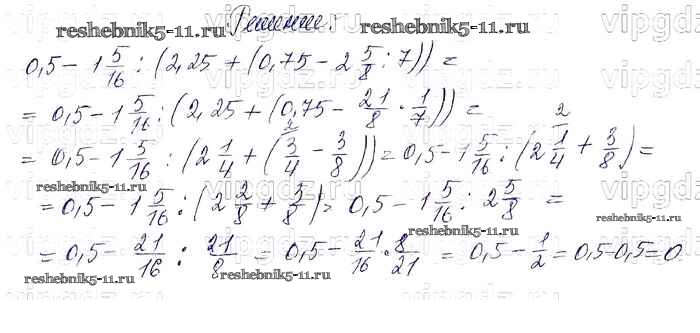 Решение.
reshebnik5-11.ru reshebnik5-11.ru
vipgdz.ru
0,5 - 1 5/16 : (2,25 + (0,75 - 2 5/8 : 7)) =
= 0,5 - 1 5/16 : (2,25 + (0,75 - 21/8 · 1/7)) =
= 0,5 - 1 5/16 : (2 1/4 + (3/4 - 3/8)) = 0,5 - 1 5/16 : (2 1/4 + 3/8) =
reshebnik5-11.ru
= 0,5 - 1 5/16 : (2 2/8 + 3/8) = 0,5 - 1 5/16 : 2 5/8 =
reshebnik5-11.ru
reshebnik5-11.ru
= 0,5 - 21/16 : 21/8 = 0,5 - 21/16 · 8/21 = 0,5 - 1/2 = 0,5 - 0,5 = 0
reshebnik5-11.ru reshebnik5-11.ru